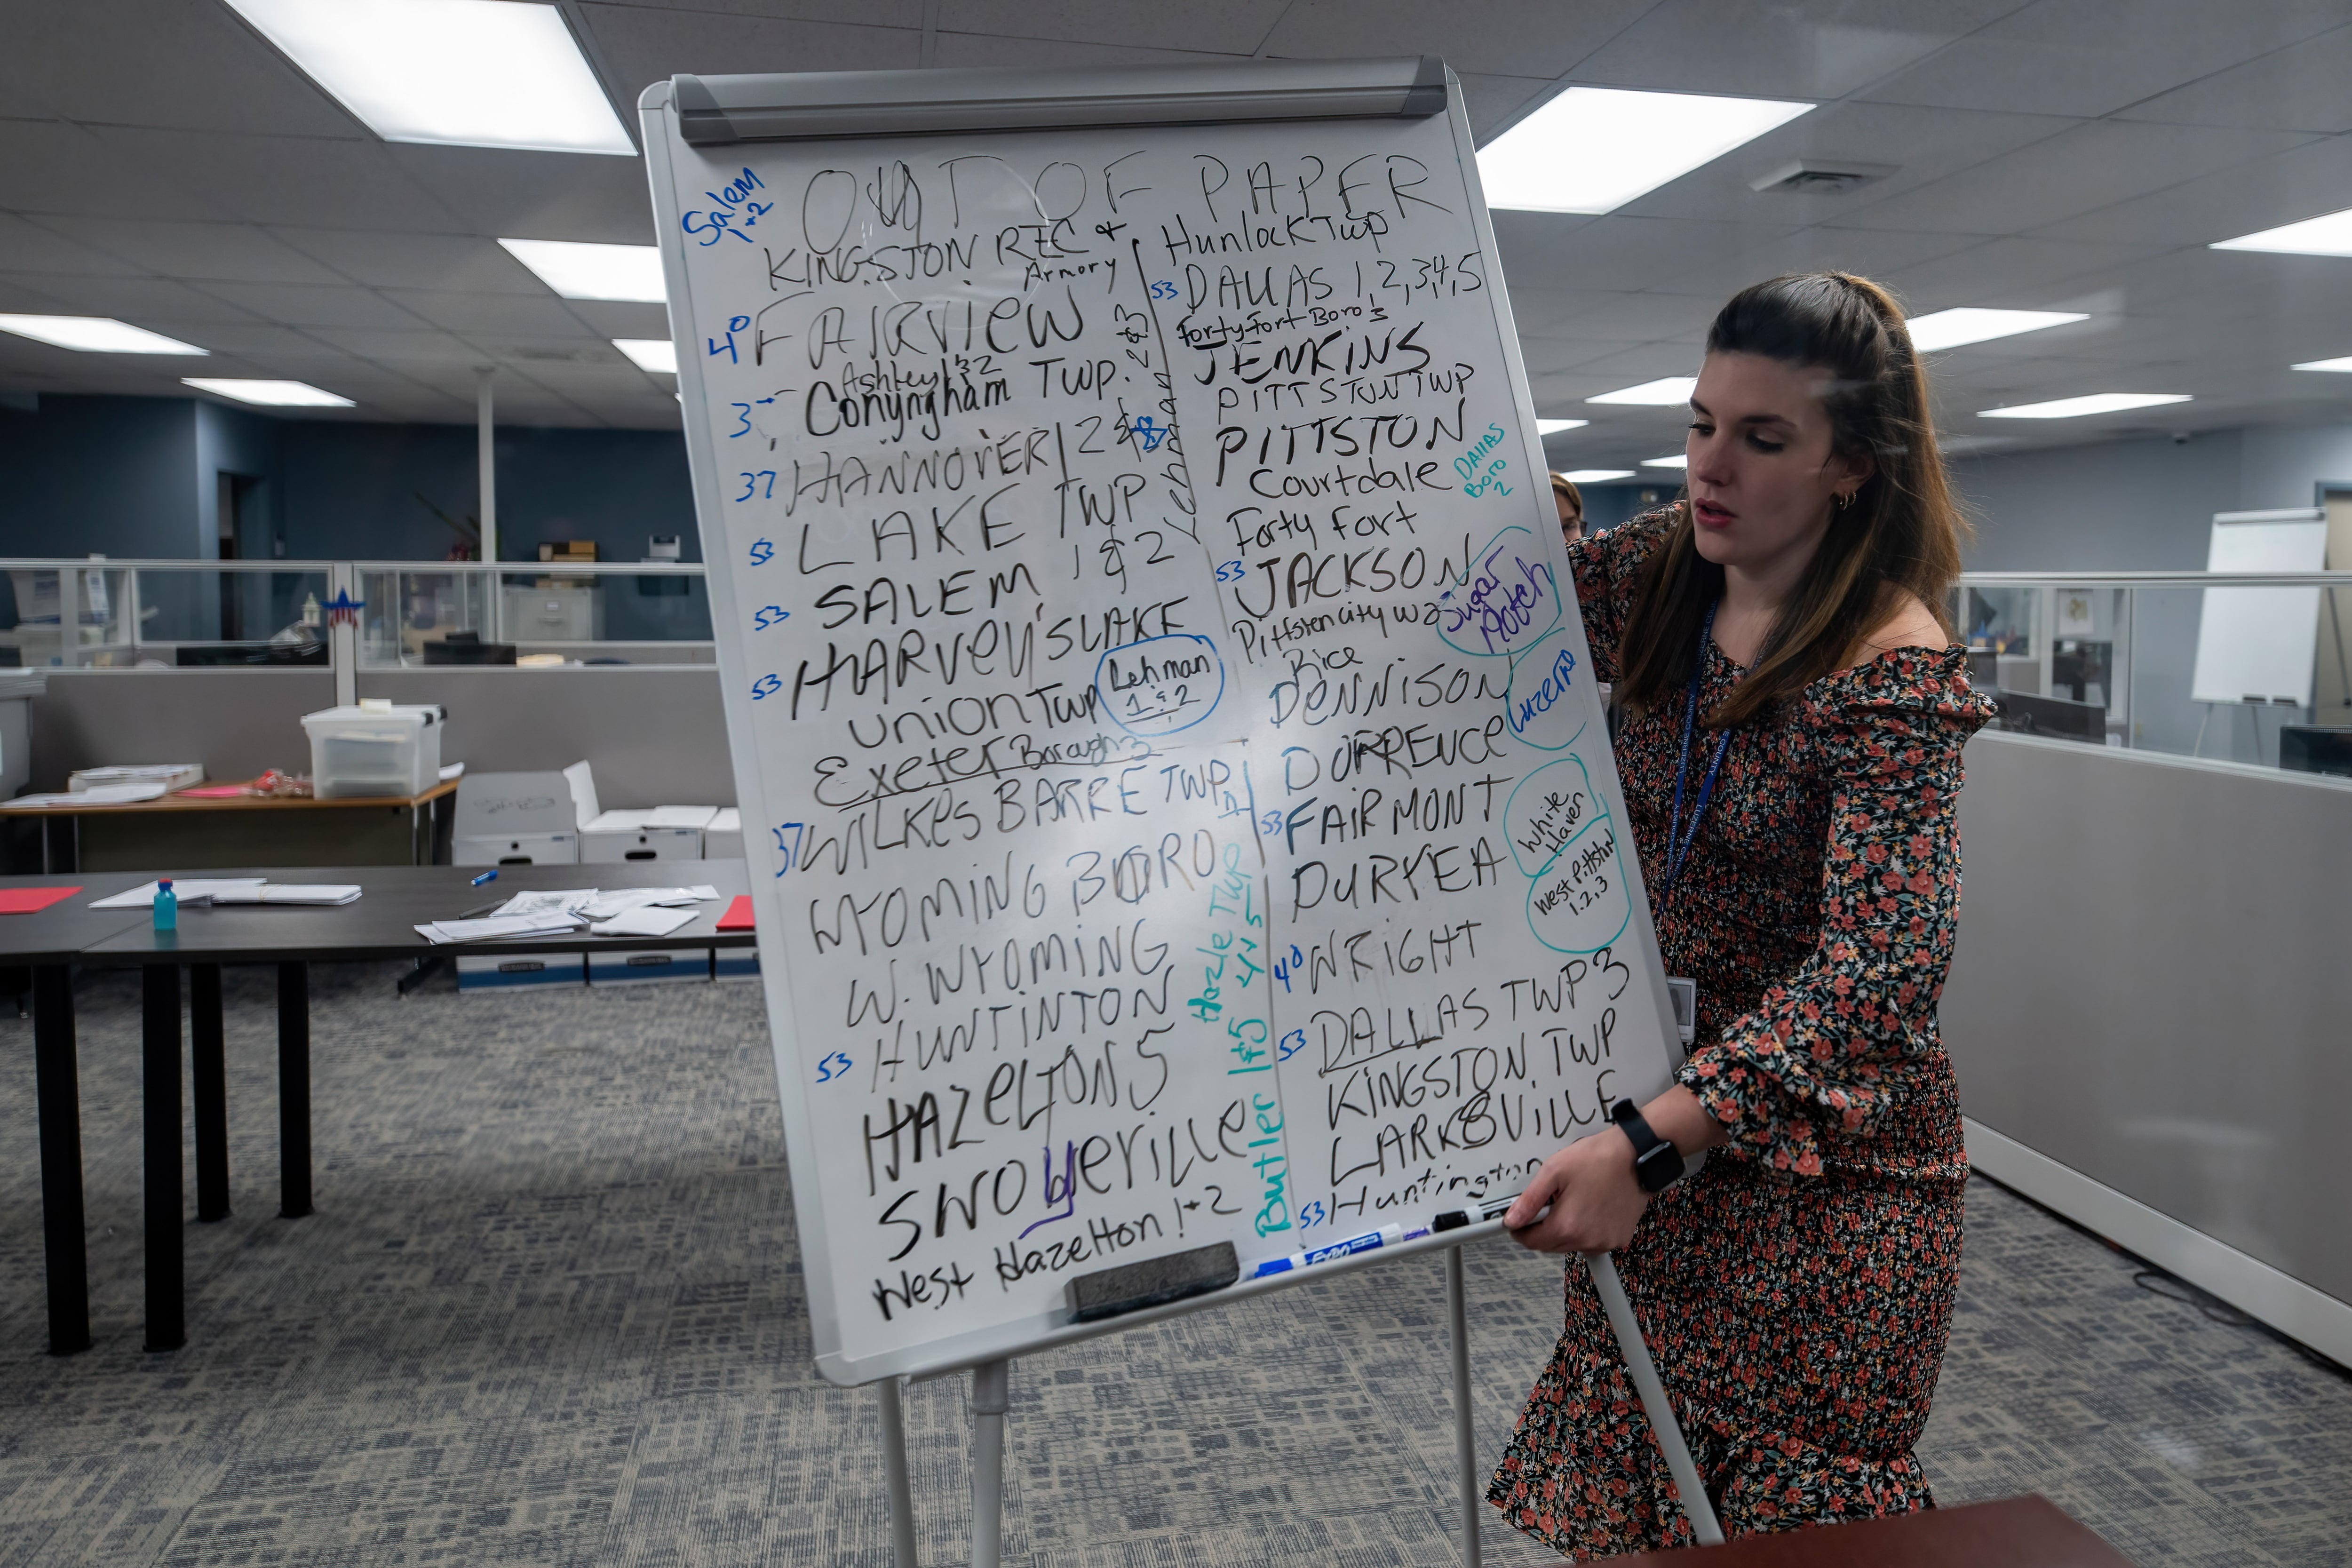 Salem
1+2
OUT OF PAPER
KINGSTON REC +
Armory
40 FAIRVIEW
Ashley 1 & 2
Conyngham TWP.
37 HANNOVER 1 2 &
53 LAKE TWP
53 SALEM 1 & 2
53 HARVEY'S LAKE
UNION TWP
Lehman
1 & 2
Exeter Borough 3
37 WILKES BARRE TWP
WYOMING BORO
W. WYOMING
53 HUNTINTON
HAZELTON 5
SWOYERVILLE
West Hazelton 1+2
Lehman 2 & 3
Hazle Twp
4 + 5
Butler 1 & 5
Hunlock Twp
53 DALLAS 1, 2, 3, 4, 5
Forty Fort Boro 3
JENKINS
PITTSTON TWP
PITTSTON
Courtdale
DALLAS
Boro
2
Forty Fort
53 JACKSON
Sugar
Notch
Pittston city W2
Rice
DENNISON
Luzerne
DORRENCE
53 FAIRMONT
White
Haven
DURYEA
West Pittston
1, 2, 3
40 WRIGHT
53 DALLAS TWP 3
KINGSTON TWP
LARKSVILLE
53 Huntington
EXPO